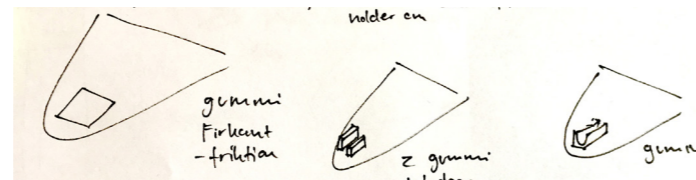 holder en
gummi
Firkant
-friktion
2 gummi
gumm